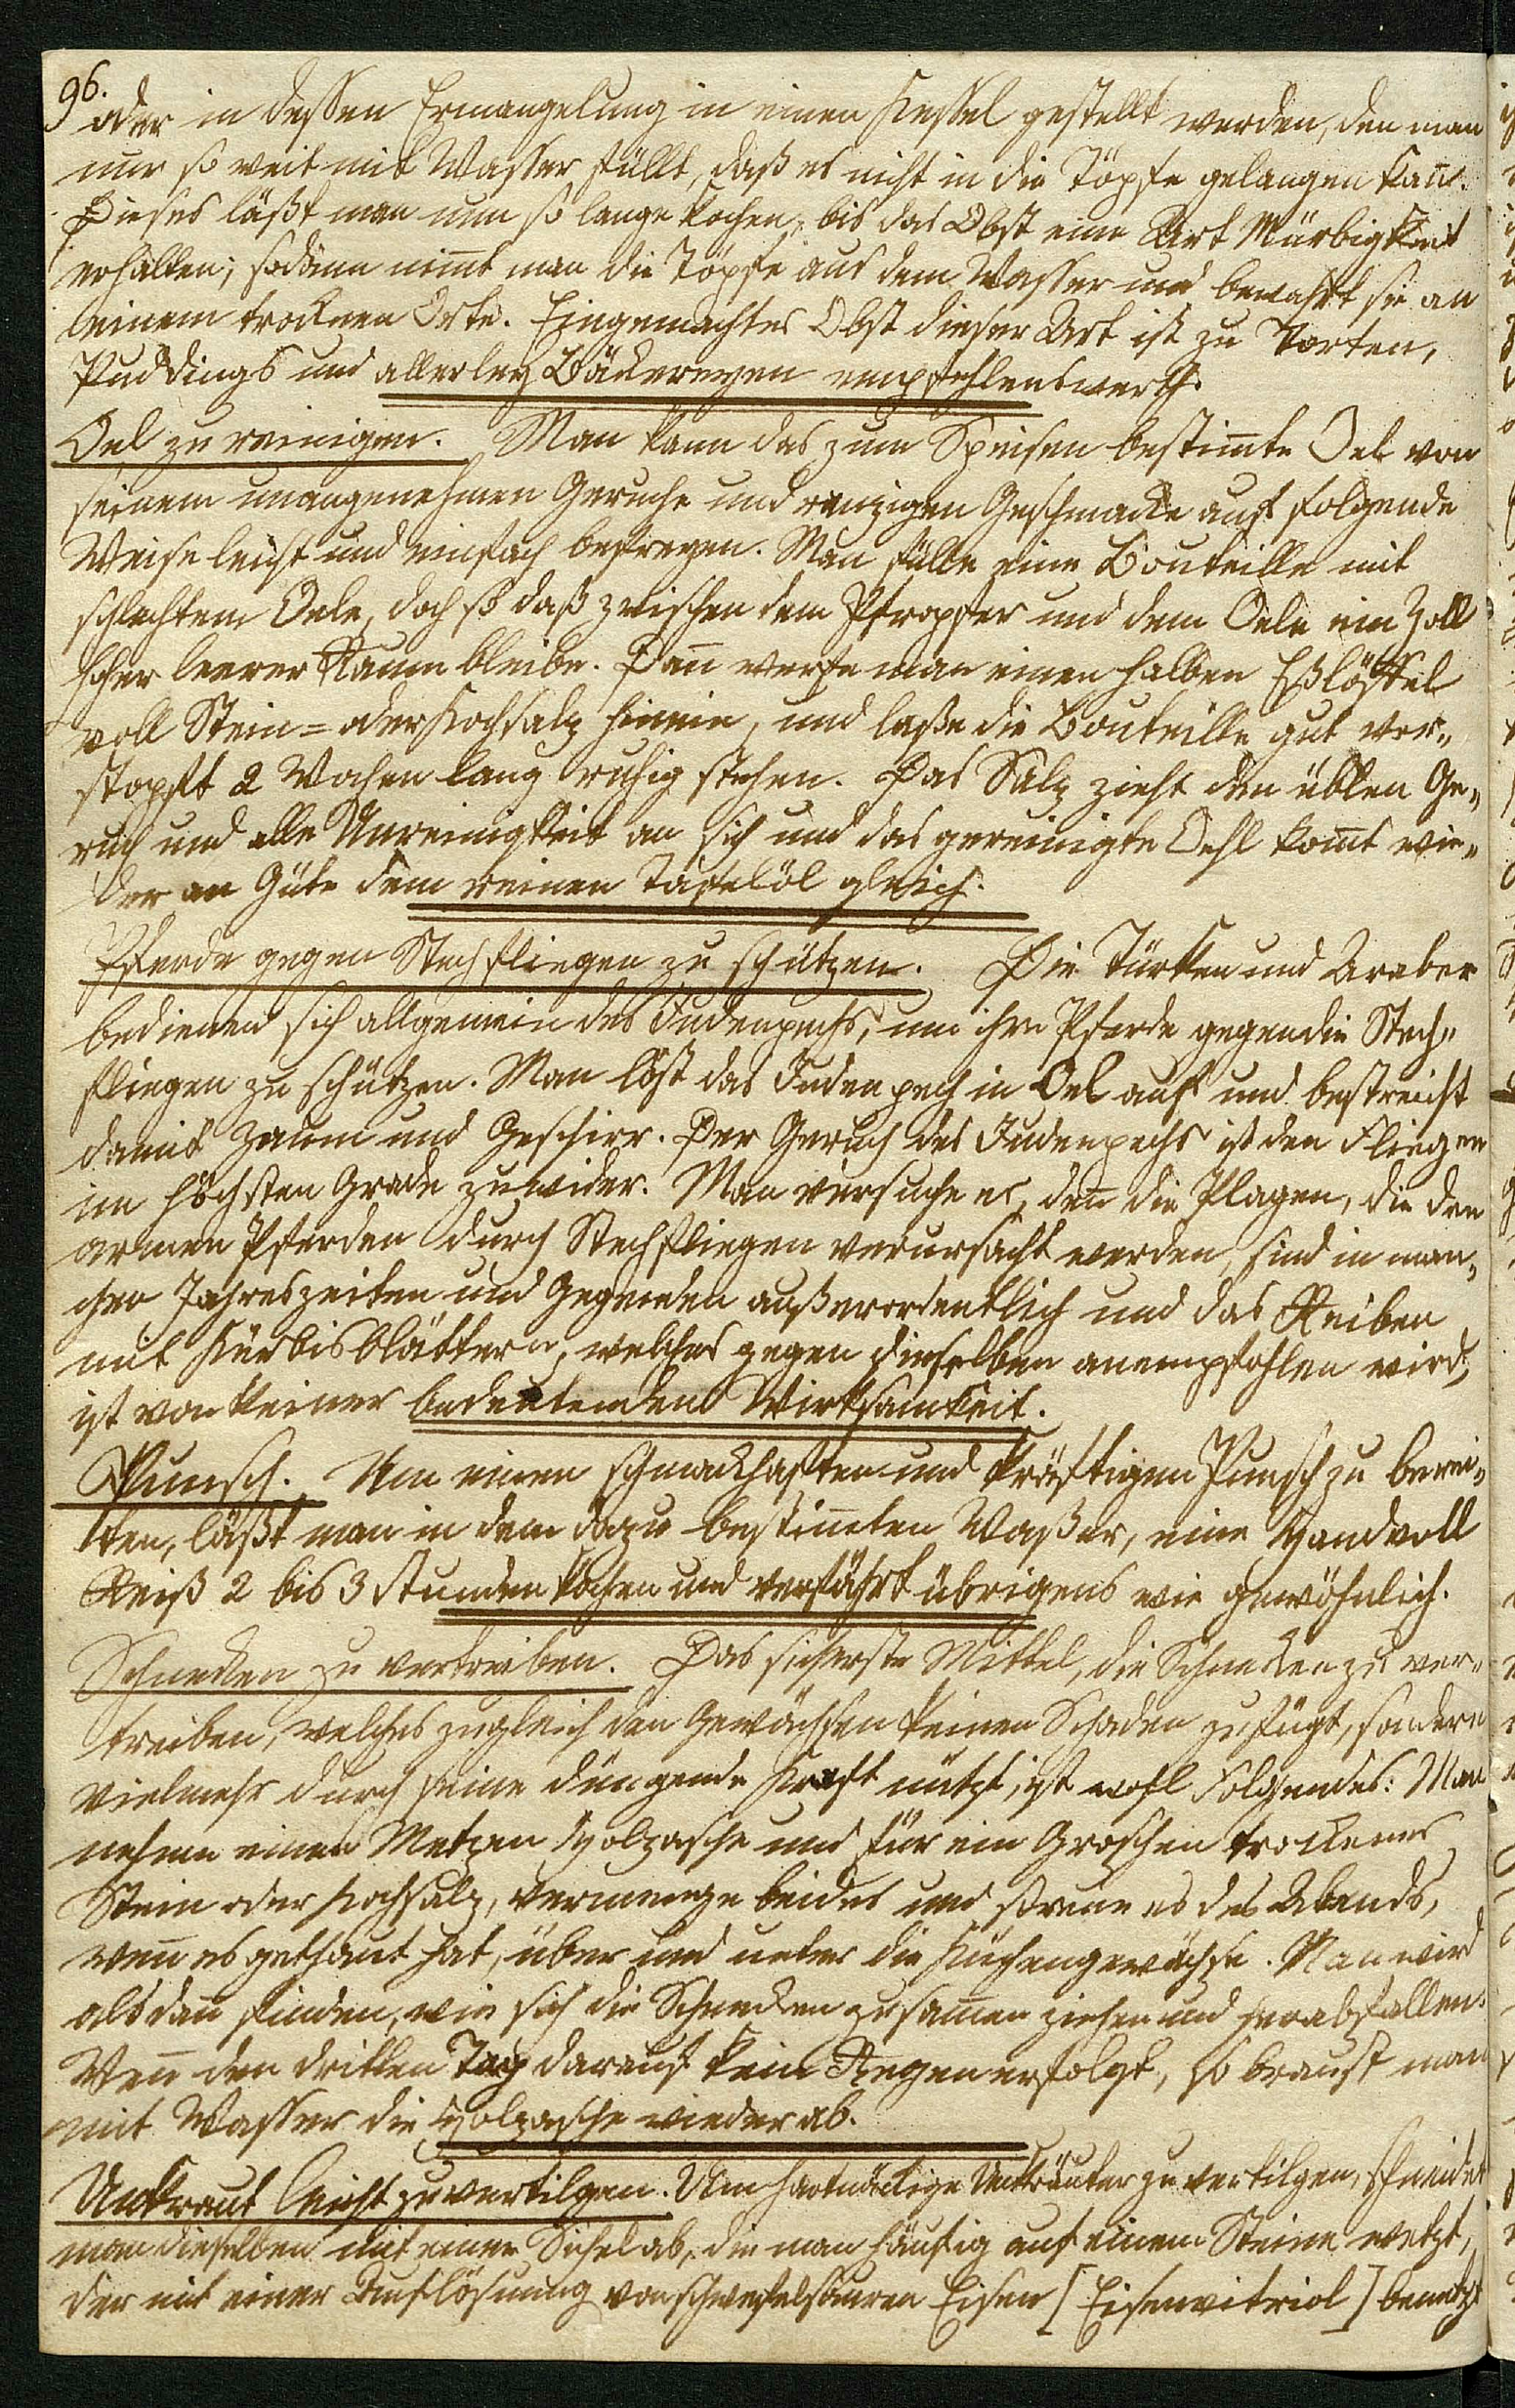 96.
oder in dessen Ermangelung in einen Kessel gestellt werden, den man
nur so weit mit Wasser füllt, daß es nicht in die Töpfe gelangen kan̄.
Dieses läßt man nun so lange kochen, bis das Obst eine Art Mürbigkeit
erhalten; sodann nim̄t man die Töpfe aus dem Wasser und bewahrt sie an
einem trocknen Orte. Eingemachtes Obst dieser Art ist zu Torten,
Puddings und allerley Bäckereyen empfehlenswerth.
Oel zu reinigen. Man kann das zum Speisen bestim̄te Oel von
seinem unangenehmen Geruche und ranzigen Geschmacke auf folgende
Weise leicht und einfach befreyen. Man fülle eine Bouteille mit
schlechtem Oele, doch so daß zwischen dem Pfropfer und dem Oele ein Zoll
hoher leerer Raum bleibe. Dan̄ werfe man einen halben Eßlöffel
voll Stein= oder Kochsalz hinein, und laße die Bouteille gut ver„
stopft 2 Wochen lang ruhig stehen. Das Salz zieht den üblen Ge„
ruch und alle Unreinigkeit an sich und das gereinigte Oehl kom̄t wie„
der an Güte dem reinen Tafelöl gleich.
Pferde gegen Stechfliegen zu schützen. Die Türken und Araber
bedienen sich allgemein des Judenpechs, um ihre Pferde gegen die Stech„
fliegen zu schützen. Man löst das Judenpech in Oel auf und bestreicht
damit Zaum und Geschirr. Der Geruch des Judenpechs ist den Fliegen
im höchsten Grade zuwider. Man versuche es, den̄ die Plagen, die den
armen Pferden durch Stechfliegen verursacht werden, sind in man„
chen Jahreszeiten und Gegenden außerordentlich und das Reiben
mit Kürbisblättern, welches gegen dieselben anempfohlen wird,
ist von keiner bedeutenden Wirksamkeit.
Punsch. Um einen schmackhaften und kräftigen Punsch zu berei„
ten, läßt man in dem dazu bestim̄ten Waßer, eine Handvoll
Reiß 2 bis 3 Stunden kochen und verfährt übrigens wie gewöhnlich.
Schnecken zu vertreiben. Das sicherste Mittel, die Schnecken zu ver„
treiben, welches zugleich den Gewächsen keinen Schaden zufügt, sondern
vielmehr durch seine düngende Kraft nützt, ist wohl Folgendes: Man
nehme einen Metzen Holzasche und für ein Groschen trockenes
Stein oder Kochsalz, vermenge beides und streue es des Abends,
wen̄ es gethaut hat, über und unter die Küchengewächse. Man wird
alsdan̄ finden, wie sich die Schnecken zusam̄en ziehen und herabfallen.
Wen̄ den dritten Tag darauf kein Regen erfolgt, so braust man
mit Wasser die Holzasche wieder ab.
Unkraut leicht zu vertilgen. Um hartnäckige Unkräuter zu vertilgen, schneidet
man dieselben mit einer Sichel ab, die man häufig auf einem Steine wetzt,
der mit einer Auflösung von schwefelsauren Eisen [Eisenvitriol] benetzt